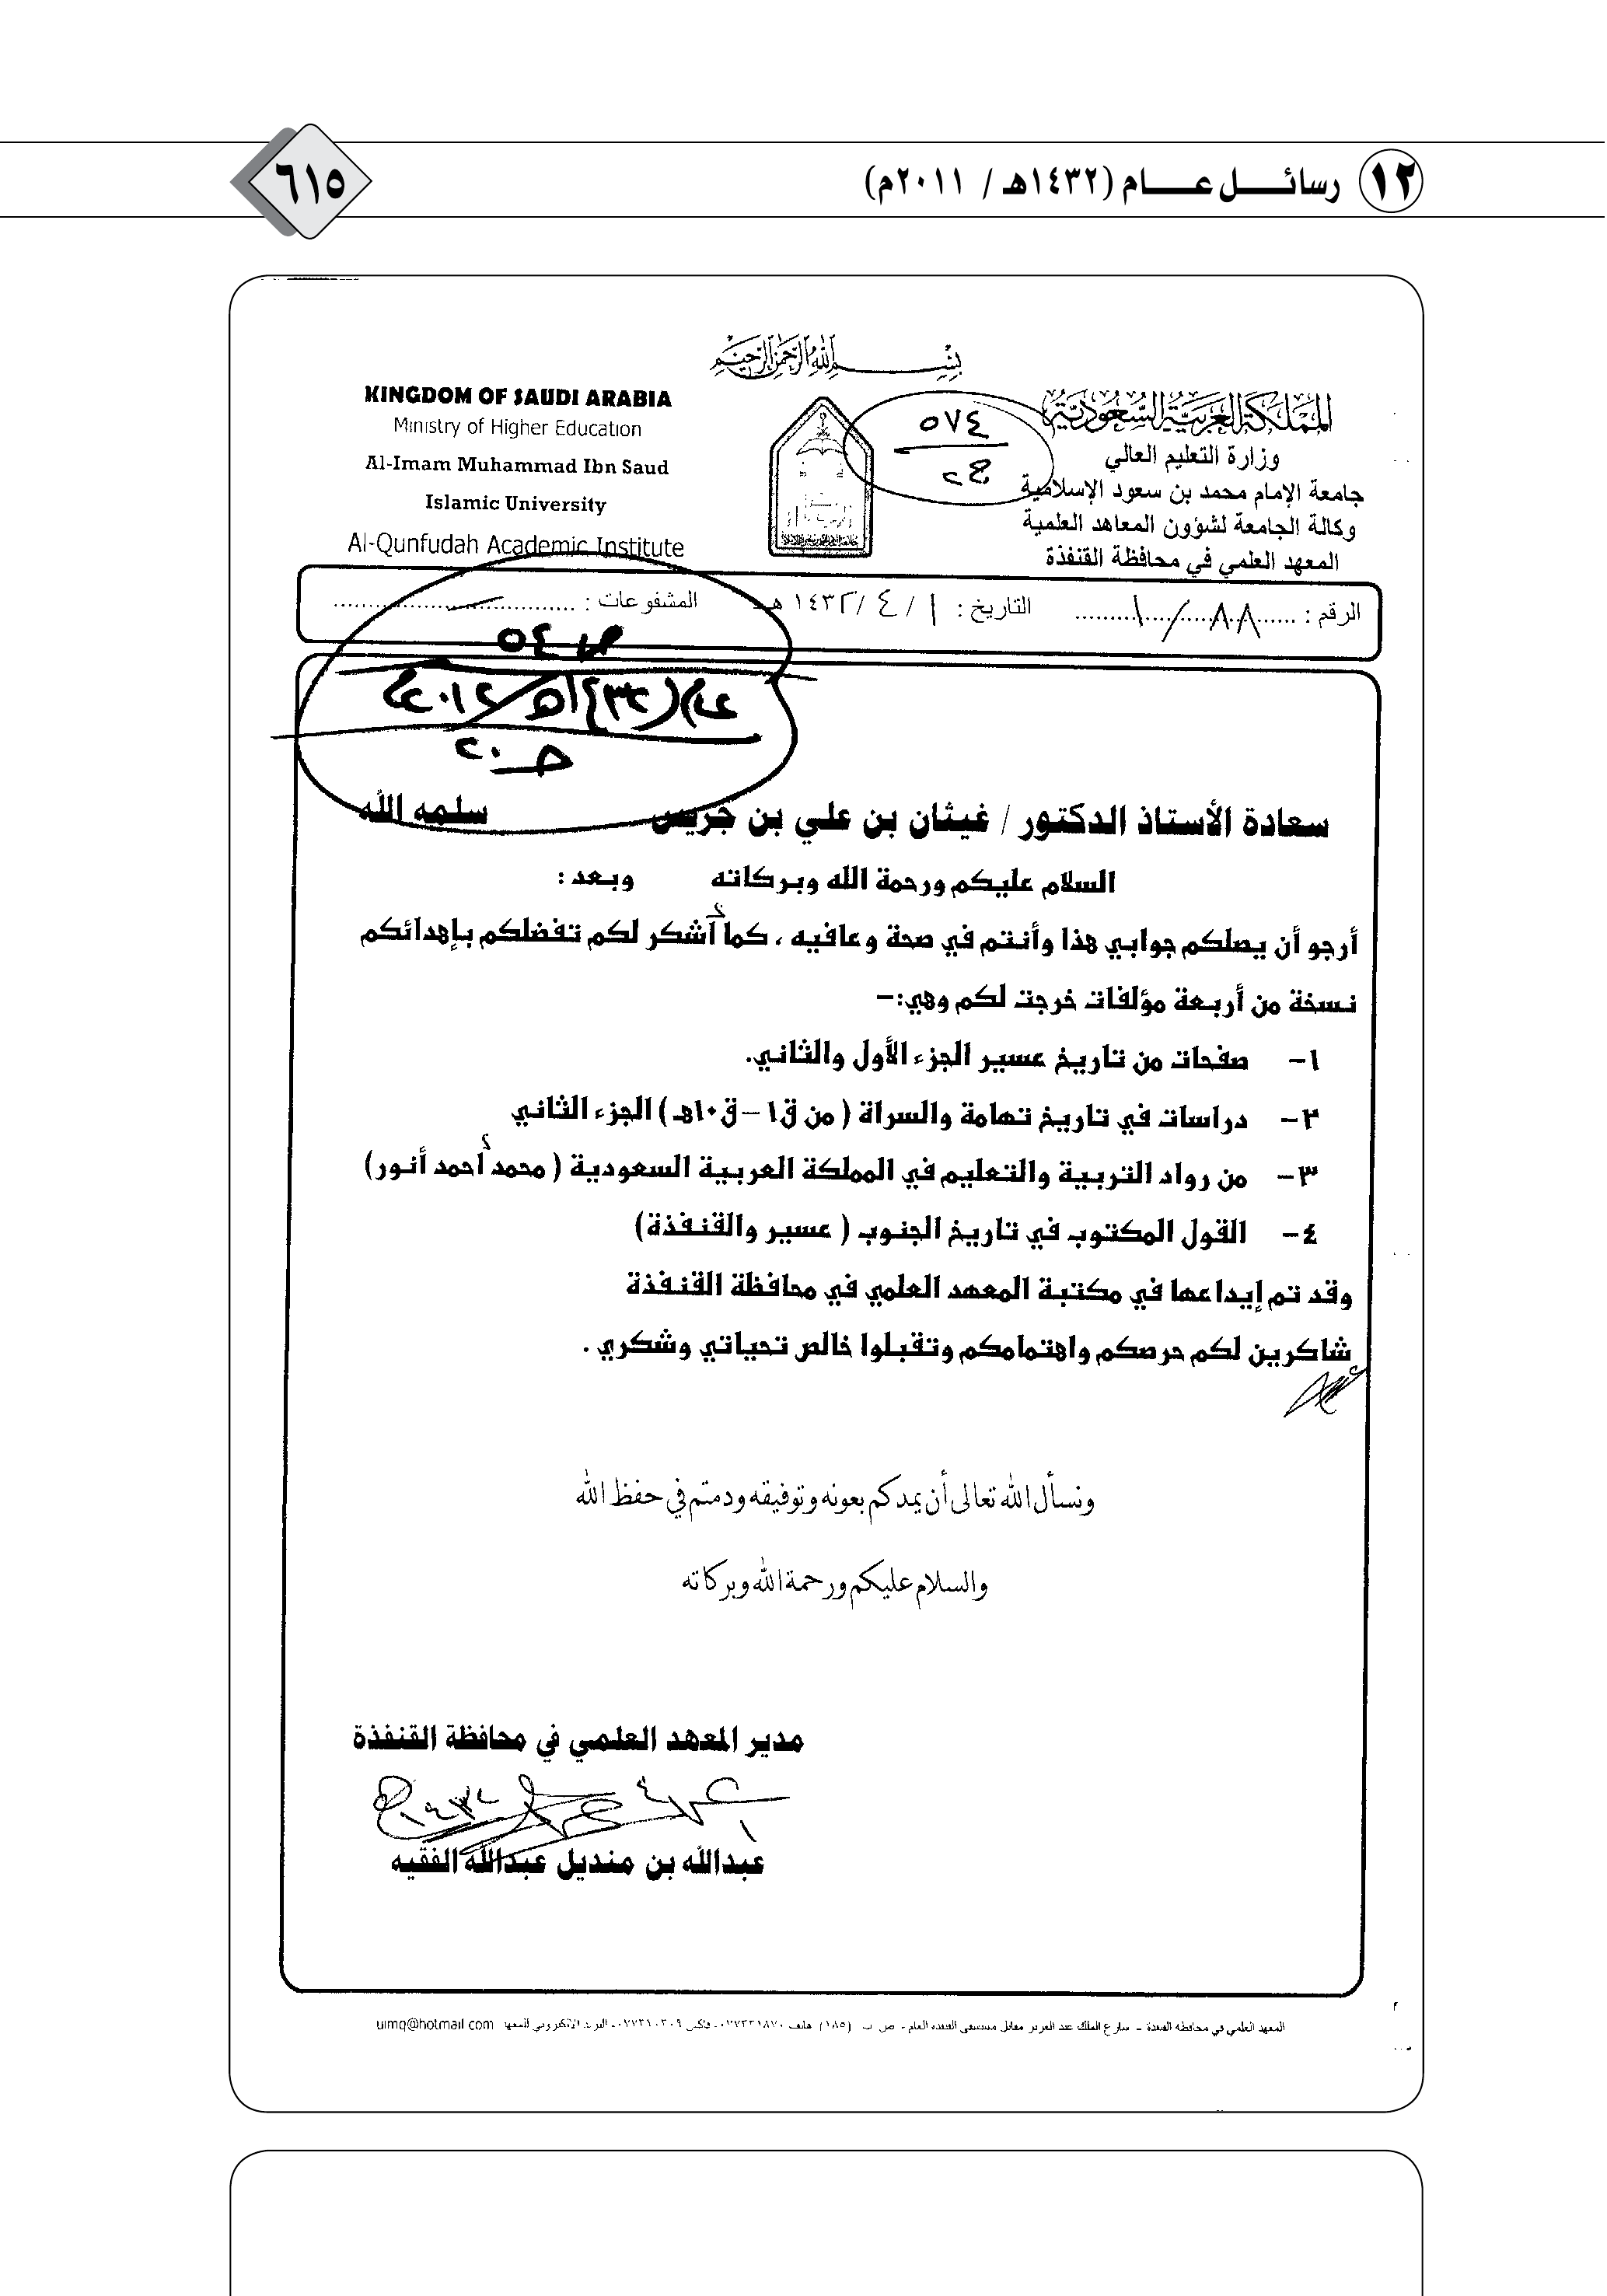 ١٢ رسائل عام (١٤٣٢هـ / ٢٠١١م)
٦١٥
بسم الله الرحمن الرحيم
المملكة العربية السعودية
وزارة التعليم العالي
جامعة الإمام محمد بن سعود الإسلامية
وكالة الجامعة لشؤون المعاهد العلمية
المعهد العلمي في محافظة القنفذة
٥٧٤
KINGDOM OF SAUDI ARABIA
Ministry of Higher Education
Al-Imam Muhammad Ibn Saud
Islamic University
Al-Qunfudah Academic Institute
الرقم : ١/٨٨ التاريخ : ١ / ٤ / ١٤٣٢ هـ المشفوعات :
سعادة الأستاذ الدكتور / غيثان بن علي بن جريس سلمه الله
السلام عليكم ورحمة الله وبركاته وبعد :
أرجو أن يصلكم جوابي هذا وأنتم في صحة وعافيه ، كما أشكر لكم تفضلكم بإهدائكم
نسخة من أربعة مؤلفات خرجت لكم وهي:-
١- صفحات من تاريخ عسير الجزء الأول والثاني.
٢- دراسات في تاريخ تهامة والسراة ( من ق١ - ق١٠هـ ) الجزء الثاني
٣- من رواد التربية والتعليم في المملكة العربية السعودية ( محمد أحمد أنور)
٤- القول المكتوب في تاريخ الجنوب ( عسير والقنفذة)
وقد تم إيداعها في مكتبة المعهد العلمي في محافظة القنفذة
شاكرين لكم حرصكم واهتمامكم وتقبلوا خالص تحياتي وشكري .
ونسأل الله تعالى أن يمدكم بعونه وتوفيقه ودمتم في حفظ الله
والسلام عليكم ورحمة الله وبركاته
مدير المعهد العلمي في محافظة القنفذة
عبدالله بن منديل عبدالله الفقيه
المعهد العلمي في محافظة القنفذة - شارع الملك عبد العزيز مقابل مستشفى القنفذة العام - ص ب (١٨٥) هاتف ٠٧٧٣٢١٨٧٠ - فاكس ٠٧٧٣١٠٣٠٩ - البريد الالكتروني للمعهد uimq@hotmail com